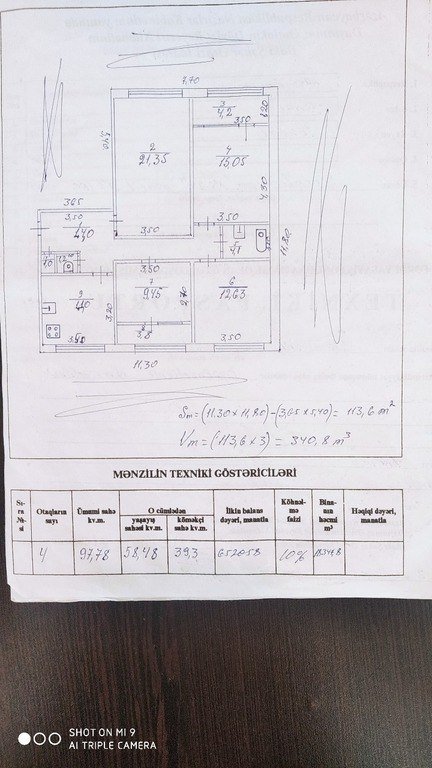 7,70
3
4,2
1,20
3,50
2
21,35
4
15,05
4,30
3,65
3,50
3,50
3,50
11,80
3,50
7
9,45
2,70
6
12,63
3,20
8
3,8
3,50
11,30
Sm = (11,30 x 11,80) - (3,65 x 5,40) = 113,6 m²
Vm = (113,6 x 3) = 340,8 m³
MƏNZİLİN TEXNİKİ GÖSTƏRİCİLƏRİ
Sı-ra №-si
Otaqların sayı
Ümumi sahə kv.m.
O cümlədən
yaşayış sahəsi kv.m.
köməkçi sahə kv.m.
İlkin balans dəyəri, manatla
Köhnəl-mə faizi
Bina-nın həcmi m³
Həqiqi dəyəri, manatla
4
97,78
58,48
39,3
10%
SHOT ON MI 9
AI TRIPLE CAMERA